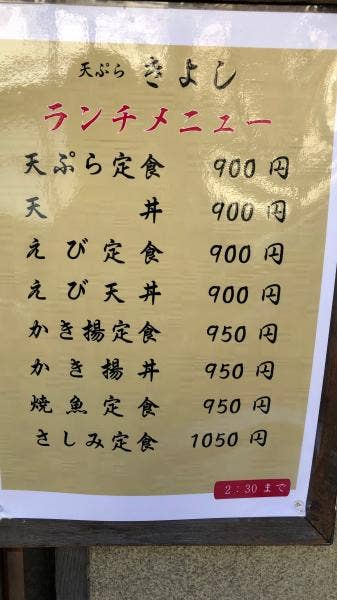 天ぷら きよし
ランチメニュー
天ぷら定食 900円
天丼 900円
えび定食 900円
えび天丼 900円
かき揚定食 950円
かき揚丼 950円
焼魚定食 950円
さしみ定食 1050円
2:30まで